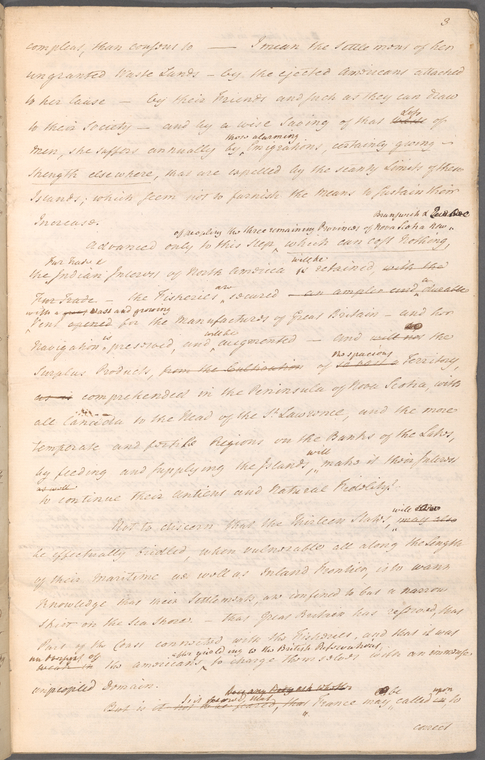 3
compleat, than consons to — I mean the Settlement of her
ungranted Waste Lands – by the ejected Americans attached
to her Cause – by their Friends and such as they can draw
to their Society – and by a wise Saving of that Loss of
those alarming
Men, she suffers annually by Emigrations, certainly giving
Strength elsewhere, that are expelled by the scanty Limits of these
Islands, which seem not to furnish the Means to sustain their
Increase.
Brunswick & Quebec
of peopling the three remaining Provinces of Nova Scotia new
Advanced only to this Step which can cost Nothing,
Fur trade & will be
the Indian Interest of North America is retained, with the
are
Fur Trade – the Fisheries secured – an ampler and durable
with a vast and growing
Vent opened for the Manufactures of Great Britain – and her
is will be
Navigation preserved, and augmented – and the
No spacious
Surplus Products, from the Cultivation of so vast a Territory,
as is comprehended in the Peninsula of Nova Scotia, with
all Canada to the Head of the St. Lawrence, and the more
temperate and fertile Regions on the Banks of the Lakes,
will
by feeding and supplying the Islands, make it their Interest
as well
to continue their antient and Natural Fidelity!
will
Not to discern that the Thirteen States, may also
be effectually bridled, when vulnerable all along the Length
of their Maritime as well as Inland Frontier, is to want
Knowledge that their Settlements, are confined to but a narrow
Skirt on the Sea Shore – that Great Britain has reserved, that
Part of the Coast connected with the Fisheries, and that it was
the yielding to the British Reservations
the Americans to charge themselves with an immense
unpeopled Domain.
be upon
But is it not to be feared, that France may called on to
correct